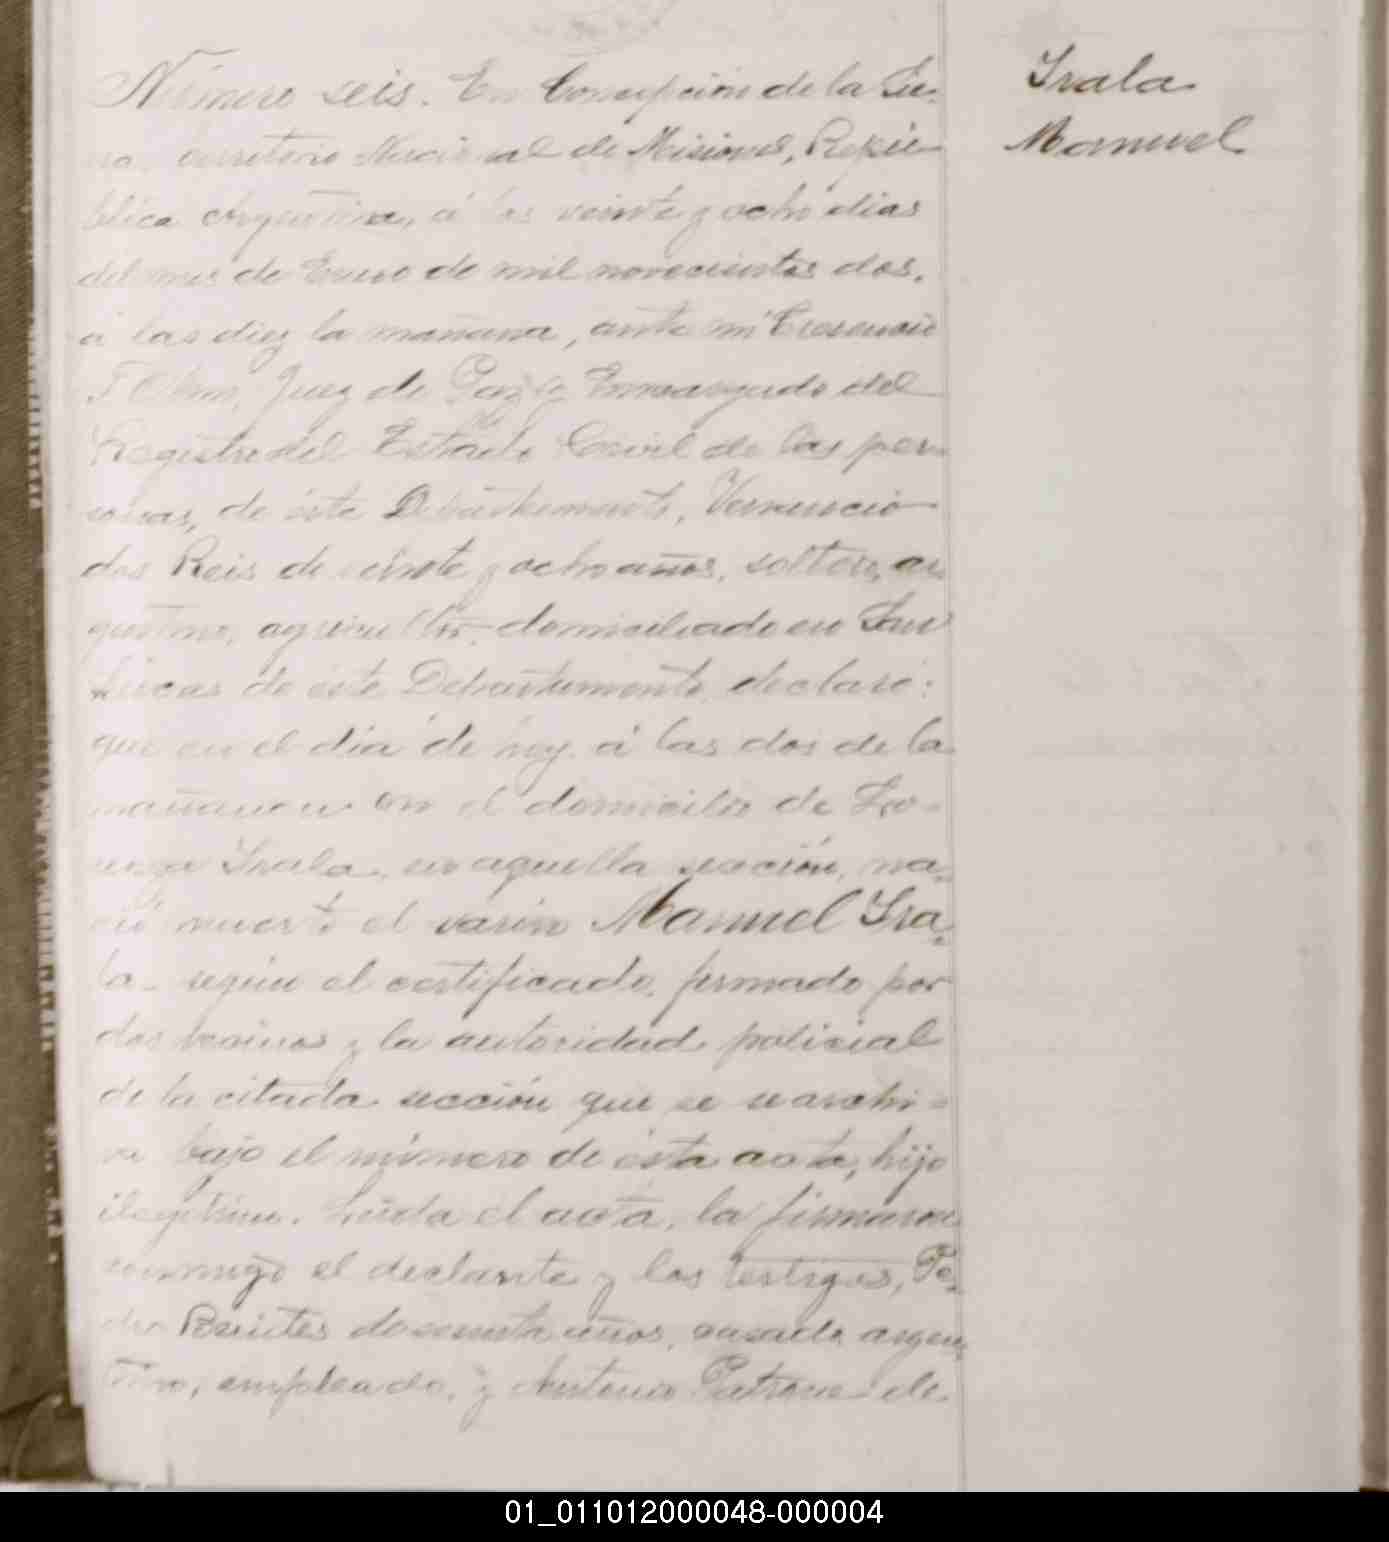 Número seis. En Concepción de la Sie-
rra, territorio Nacional de Misiones, Repú-
blica Argentina, á los veinte y ocho dias
del mes de Enero de mil novecientos dos,
á las diez la mañana, ante mi
Juez de Paz y Encargado del
Registro del Estado Civil de las per-
sonas, de éste Departamento, Venancio
dos Reis de veinte y ocho años, soltero, ar-
gentino, agricultor, domiciliado en San
Lucas de éste Departamento, declaró:
que en el dia de hoy á las dos de la
mañana en el domicilio de Lo-
renza Irala, en aquella sección, na-
ció muerto el varón Manuel Ira-
la. según el certificado, firmado por
dos vecinos y la autoridad policial
de la citada sección que se archi-
va bajo el número de ésta acta, hijo
ilegitimo. Leida el acta, la firmaron
conmigo el declarante y los testigos, Pe-
dro Benites de años, casado, argen-
tino, empleado, y Antonio de
Irala
Manuel
01_011012000048-000004